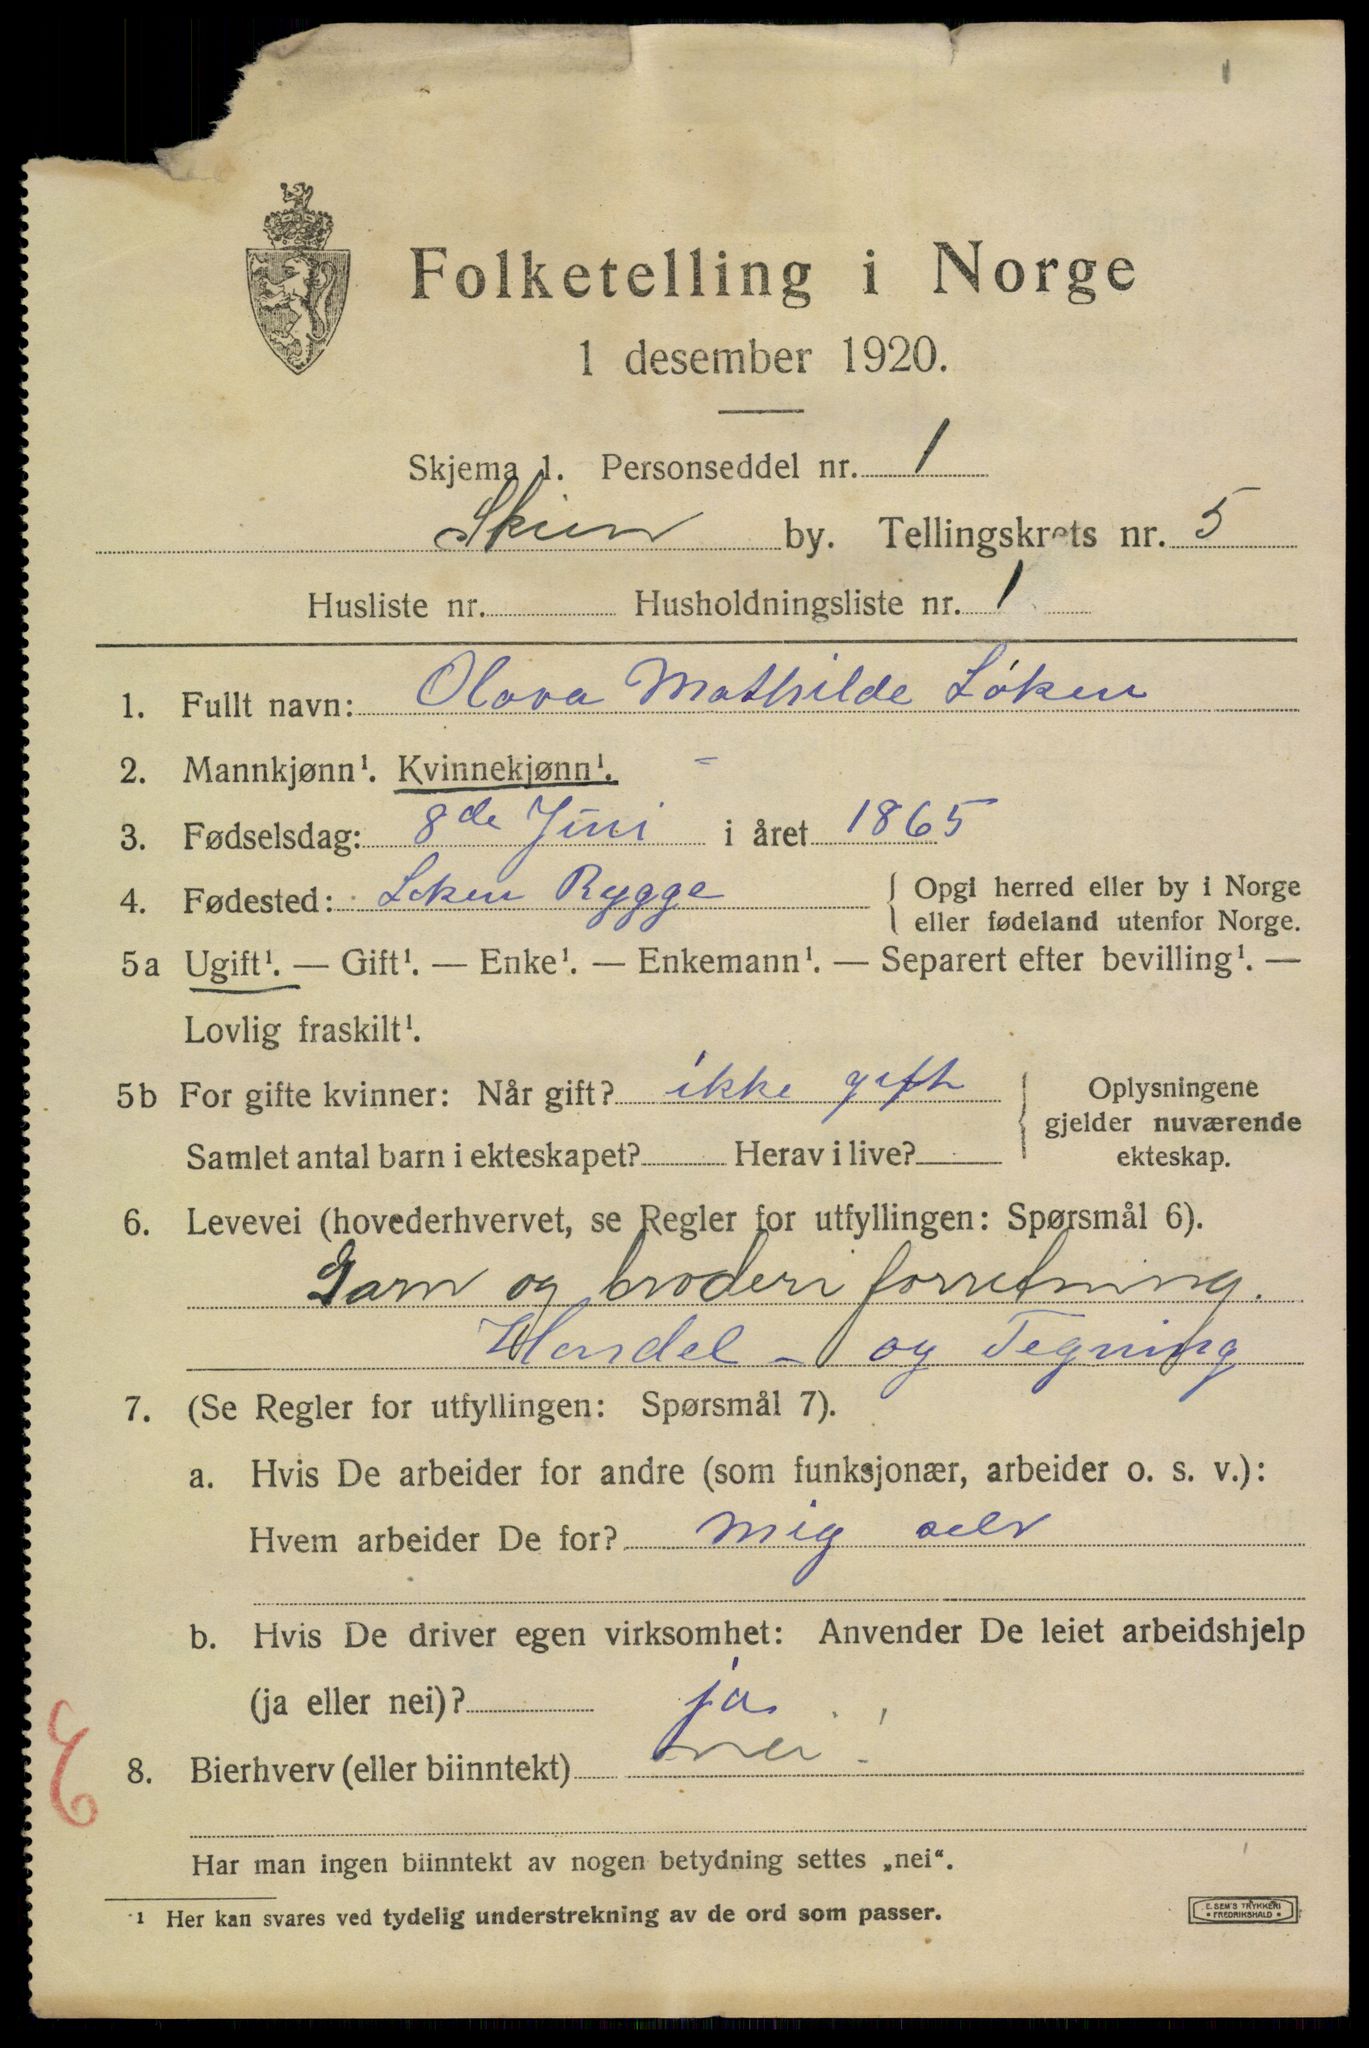 1
Folketelling i Norge
1 desember 1920.
Skjema 1. Personseddel nr. 1
Skien by. Tellingskrets nr. 5
Husliste nr. Husholdningsliste nr. 1
1. Fullt navn: Olava Mathilde Løken
2. Mannkjønn¹. Kvinnekjønn¹.
3. Fødselsdag: 8de Juni i året 1865
4. Fødested: Løken Rygge { Opgi herred eller by i Norge
eller fødeland utenfor Norge.
5a Ugift¹. — Gift¹. — Enke¹. — Enkemann¹. — Separert efter bevilling¹. —
Lovlig fraskilt¹.
5b For gifte kvinner: Når gift? ikke gift { Oplysningene
gjelder nuværende
ekteskap.
Samlet antal barn i ekteskapet? Herav i live?
6. Levevei (hovederhvervet, se Regler for utfyllingen: Spørsmål 6).
Garn og broderi forretning.
Handel - og Tegning
7. (Se Regler for utfyllingen: Spørsmål 7).
a. Hvis De arbeider for andre (som funksjonær, arbeider o. s. v.):
Hvem arbeider De for? Mig selv
b. Hvis De driver egen virksomhet: Anvender De leiet arbeidshjelp
(ja eller nei)? ja
8. Bierhverv (eller biinntekt) nei!
Har man ingen biinntekt av nogen betydning settes „nei“.
¹ Her kan svares ved tydelig understrekning av de ord som passer.
E. SEM'S TRYKKERI
• FREDRIKSHALD •